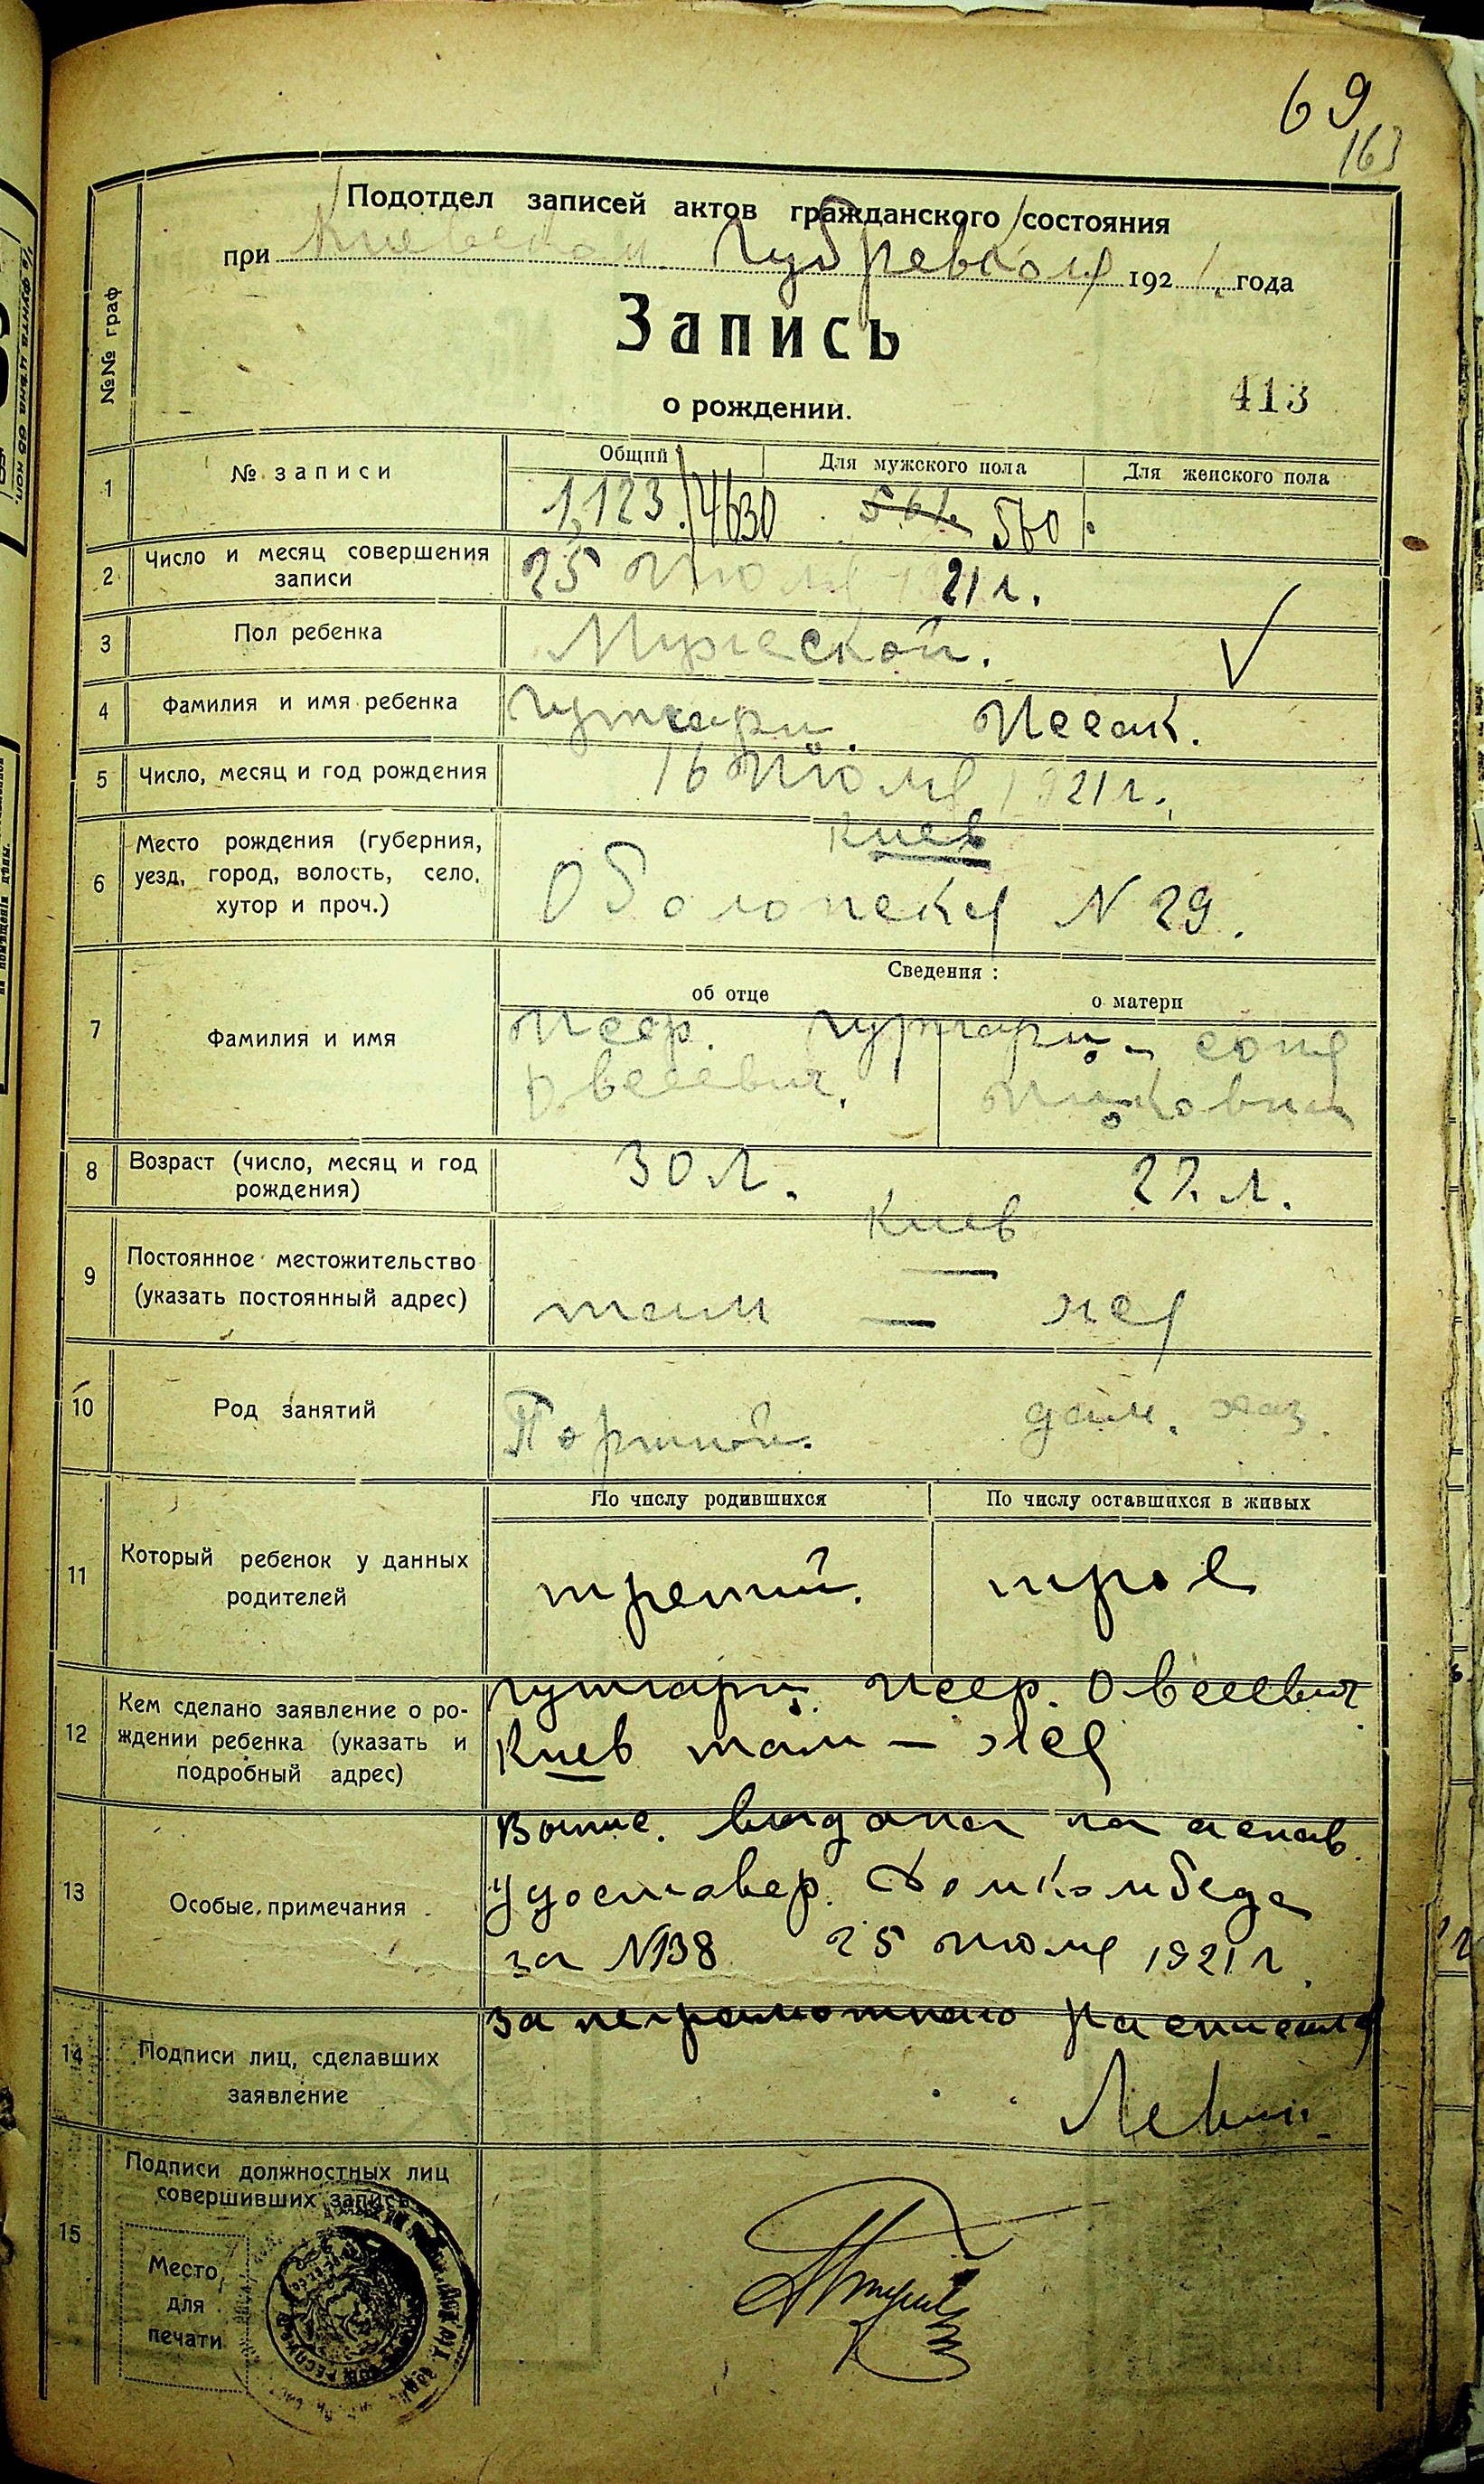 69
163
Подотдел записей актов гражданского состояния
при Киевском Губревкоме 1921 года
Запись
о рождении.
413
№№ граф
1 № записи
Общий Для мужского пола Для женского пола
1,123./4630 561. 560
2 Число и месяц совершения записи
25 Июля 1921 г.
3 Пол ребенка
Мужеской.
4 Фамилия и имя ребенка
Гутгарц. Исак.
5 Число, месяц и год рождения
16 Июля 1921 г.
6 Место рождения (губерния,
уезд, город, волость, село,
хутор и проч.)
Киев
Оболонская N 29.
Сведения:
об отце о матери
7 Фамилия и имя
Исер. Гутгарц - Соня
Овсеевич. Ицковна
8 Возраст (число, месяц и год
рождения)
30 л. 27. л.
9 Постоянное местожительство
(указать постоянный адрес)
Киев
там — же
10 Род занятий
Портной. дом. хоз.
11 Который ребенок у данных
родителей
По числу родившихся По числу оставшихся в живых
третий. трое
12 Кем сделано заявление о ро-
ждении ребенка (указать и
подробный адрес)
Гутгарц Исер. Овсеевич
Киев там — же
13 Особые примечания
Выпис. выдана на основ.
удостовер. Домкомбеда
за N138 25 Июля 1921 г.
14 Подписи лиц, сделавших
заявление
За неграмотного расписался
Левин
15 Подписи должностных лиц
совершивших запись
Место
для
печати